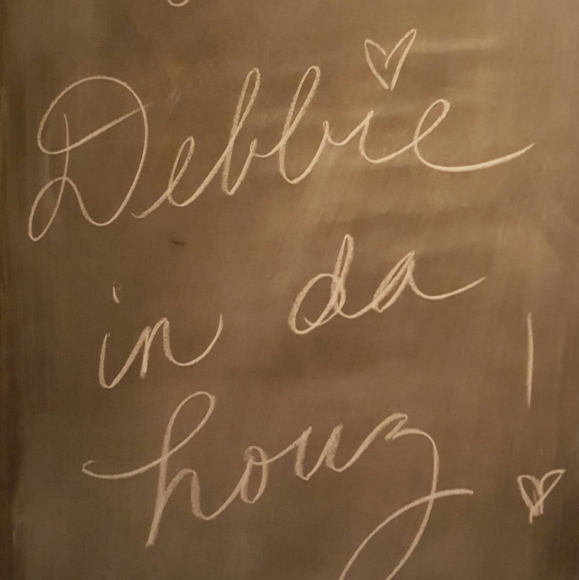 Debbie
in da
houz!